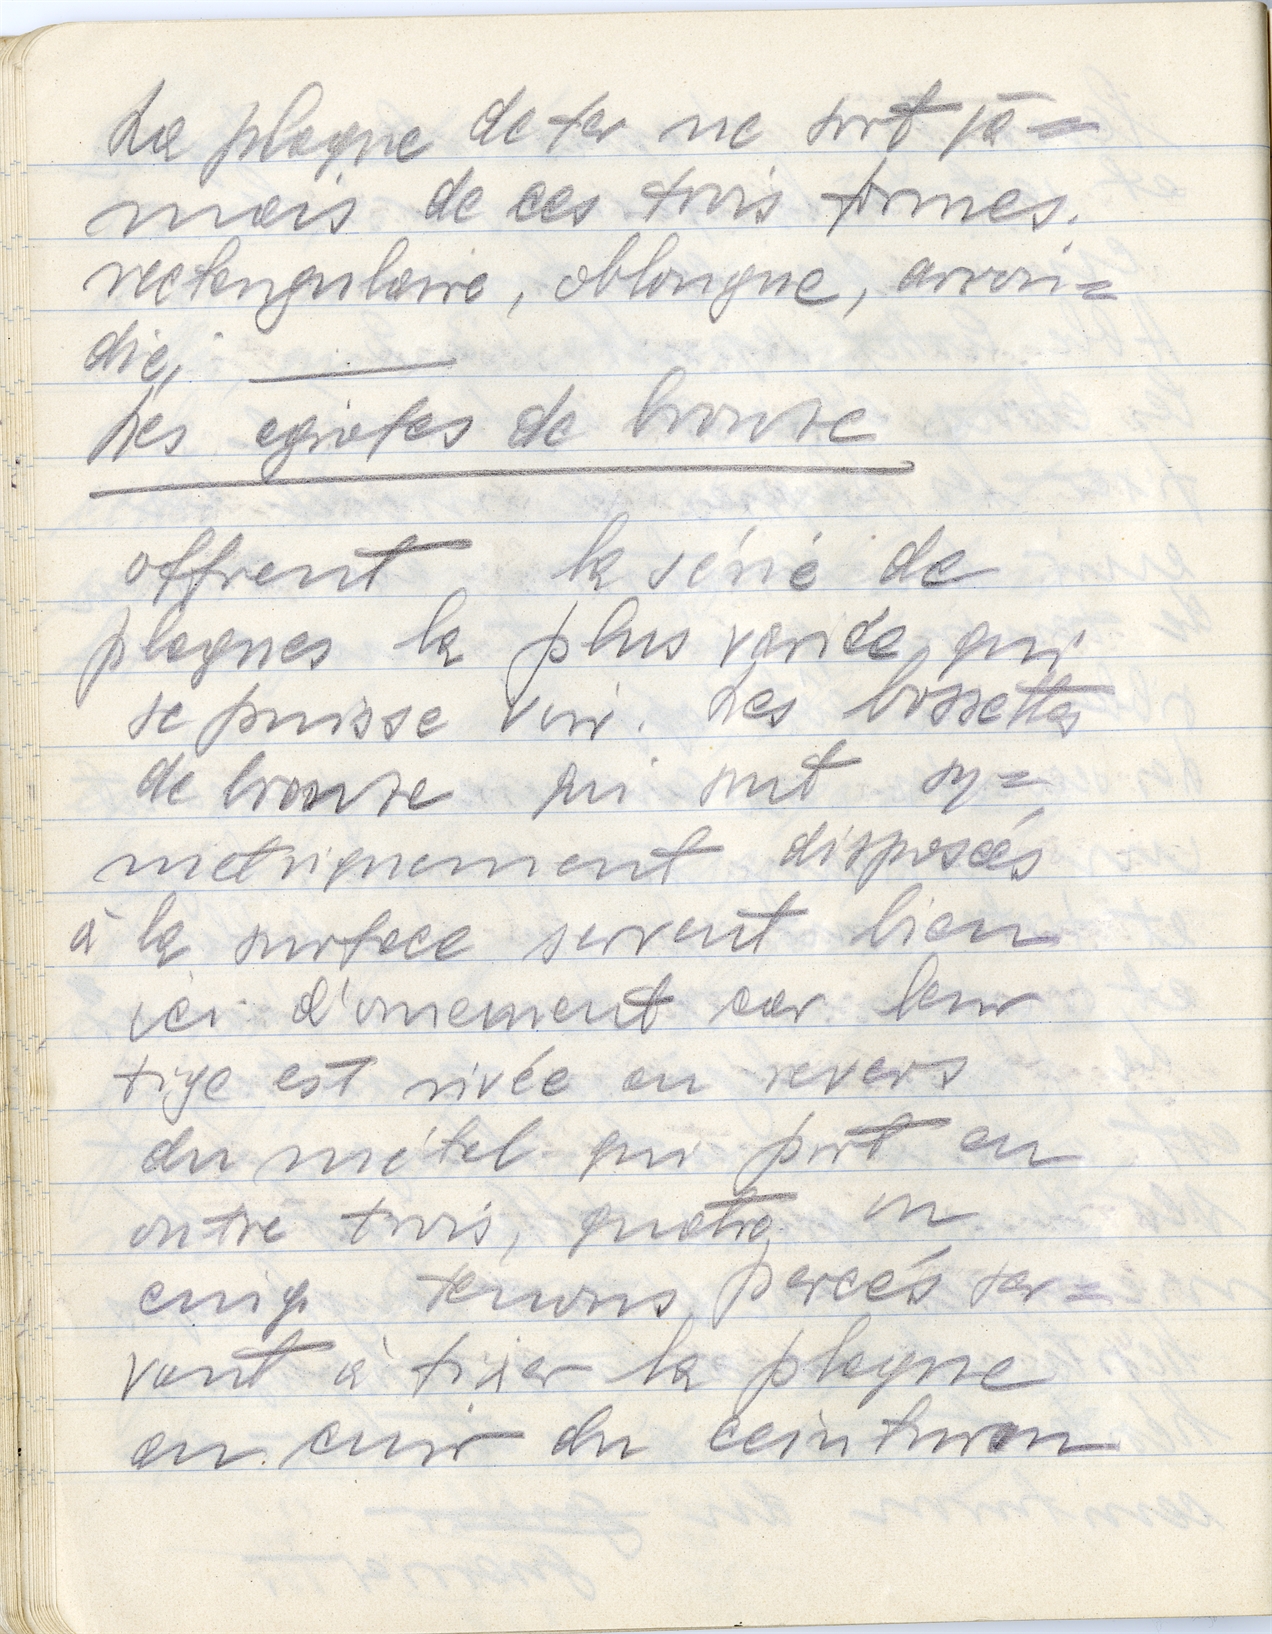 La plaque de fer ne sort ja=
mais de ces trois formes.
rectangulaire, oblongue, arron=
die,
Les agrafes de bronze
offrent la série de
plaques la plus variée qui
se puisse voir. Les bossettes
de bronze qui sont sy=
métriquement disposées
à la surface servent bien
ici d'ornement car leur
tige est rivée au revers
du métal qui port en
outre trois, quatre ou
cinq tenons percés ser=
vant à fixer la plaque
au cuir du ceinturon